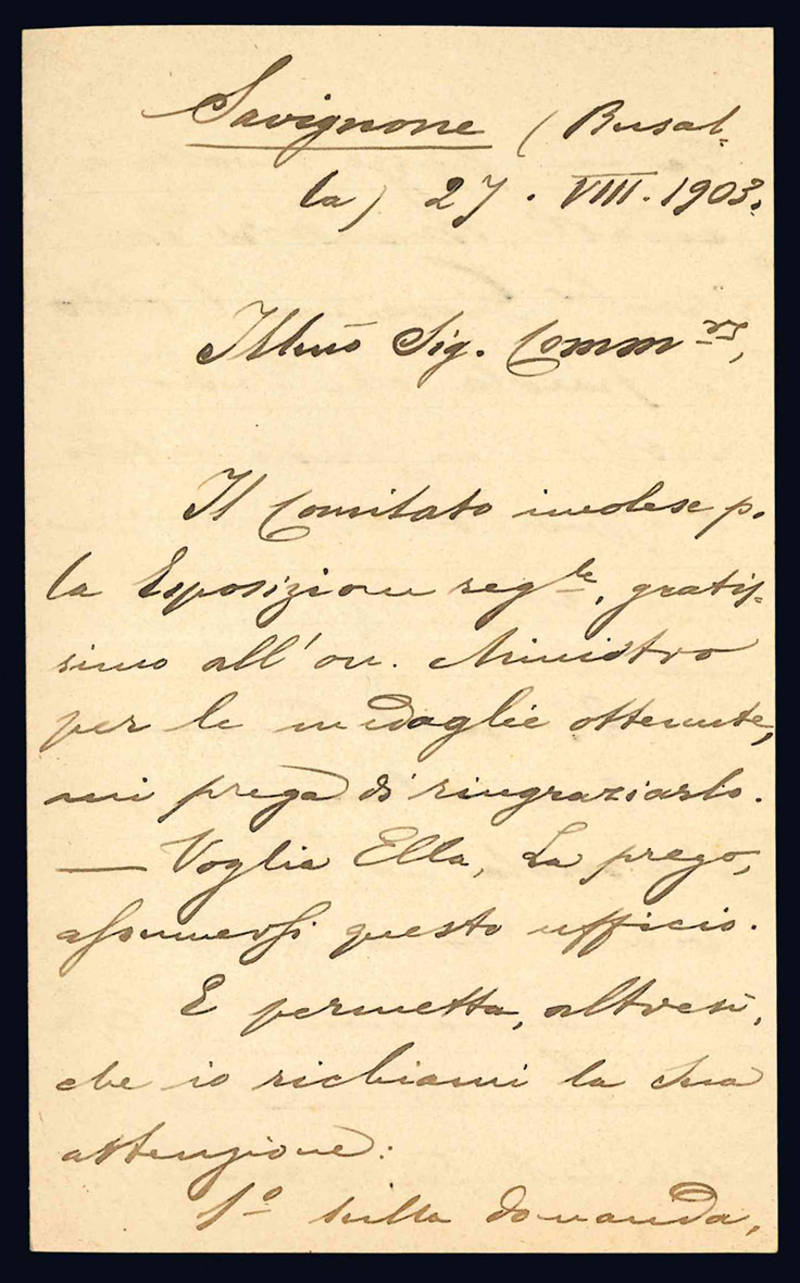 Savignone (Busal=
la) 27. VIII. 1903.
Illmo Sig. Comm re,
Il Comitato imolese p.
la Esposizione reg le, gratis=
simo all'on. Ministro
per le medaglie ottenute,
mi prega di ringraziarlo.
— Voglia Ella, La prego,
assumersi questo ufficio.
E permetta, altresì,
che io richiami la Sua
attenzione:
1º sulla domanda,